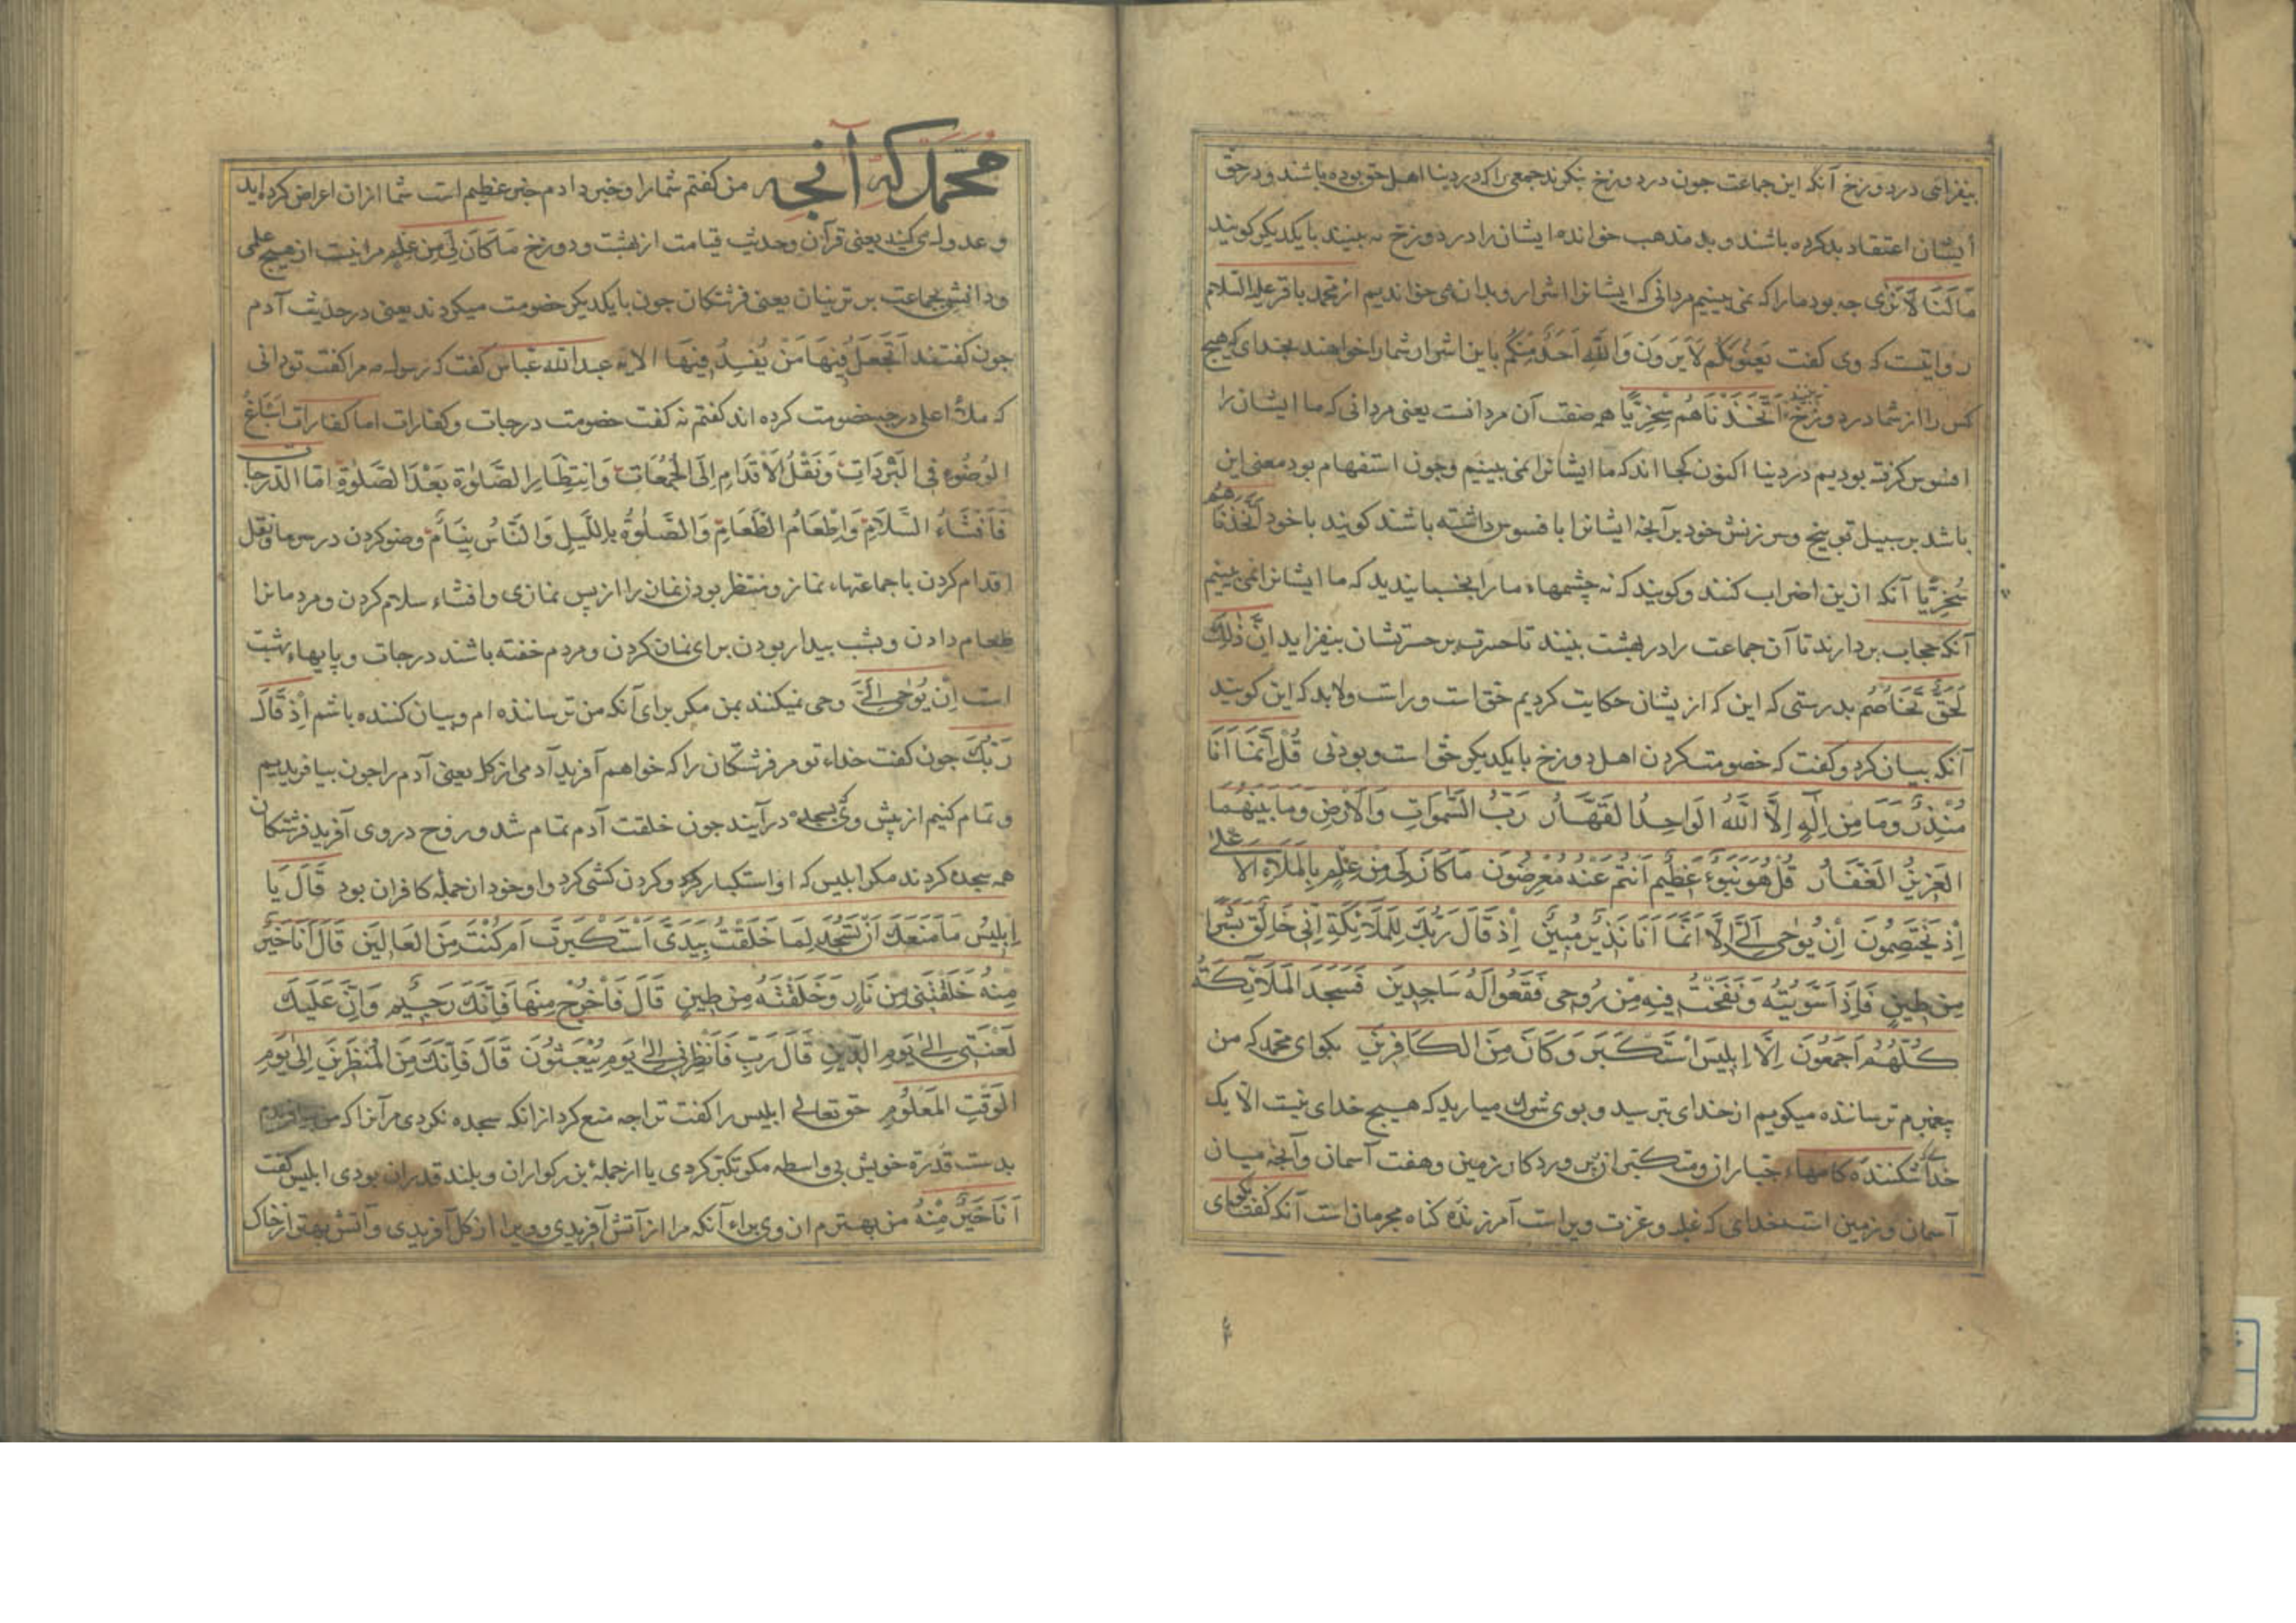 بیفزائی در دوزخ آنکه این جماعت چون در دوزخ بنکرند جمعی را که در دنیا اهل حق بوده باشند و در حق
ایشان اعتقاد بد کرده باشند و بد مذهب خوانده ایشان را در دوزخ نه بینند با یکدیکر کویند
مَا لَنَا لَا نَرٰی چه بود ما را که نمی بینیم مردانی که ایشانرا اشرار و بدان می خواندیم از محمد باقر علیه السلام
روایتست که وی کفت یَعنُونَکُم لَا یَرَونَ وَاللّٰهِ اَحَدٌ مِنکُم باین اشرار شما را خواهند بخدای که هیچ
کس را از شما در دوزخ نه بینند اَتَّخَذنَاهُم سِخرِیًّا هم صفت آن مردانست یعنی مردانی که ما ایشان را
افسوس کرفته بودیم در دنیا اکنون کجا اند که ما ایشانرا نمی بینیم و چون استفهام بود معنی این
باشد بر سبیل توبیخ و سرزنش خود بر آنچه ایشانرا بافسوس داشته باشند کویند با خود اَتَّخَذنَاهُم
سُخرِیًّا آنکه ازین اضراب کنند و کویند که نه چشمهاء ما را بخسبانیدید که ما ایشانرا نمی بینیم
آنکه حجاب بردارند تا آن جماعت را در بهشت بینند تا حسرت بر حسرتشان بیفزاید اِنَّ ذٰلِكَ
لَحَقٌّ تَخَاصُمُ بدرستی که این که ازیشان حکایت کردیم حق است و راست ولابد که این کویند
آنکه بیان کرد و کفت که خصومت کردن اهل دوزخ با یکدیکر حق است و بودنی قُل اِنَّمَا اَنَا
مُنذِرٌ وَمَا مِن اِلٰهٍ اِلَّا اللّٰهُ الوَاحِدُ القَهَّارُ رَبُّ السَّمٰوَاتِ وَالاَرضِ وَمَا بَینَهُمَا
العَزِیزُ الغَفَّارُ قُل هُوَ نَبَؤٌ عَظِیمٌ اَنتُم عَنهُ مُعرِضُونَ مَا کَانَ لِیَ مِن عِلمٍ بِالمَلَاءِ الاَعلٰی
اِذ یَختَصِمُونَ اِن یُوحٰی اِلَیَّ اِلَّا اَنَّمَا اَنَا نَذِیرٌ مُبِینٌ اِذ قَالَ رَبُّكَ لِلمَلَائِکَةِ اِنِّی خَالِقٌ بَشَرًا
مِن طِینٍ فَاِذَا سَوَّیتُهُ وَنَفَختُ فِیهِ مِن رُوحِی فَقَعُوا لَهُ سَاجِدِینَ فَسَجَدَ المَلَائِکَةُ
کُلُّهُم اَجمَعُونَ اِلَّا اِبلِیسَ استَکبَرَ وَکَانَ مِنَ الکَافِرِینَ بکوای محمد که من
پیغمبرم ترساننده میکویم از خدای بترسید و بوی شرك میارید که هیچ خدای نیست الا یك
خدا شکننده کامهاء جباران و متکبران پروردکار زمین و هفت آسمان وآنچه میان
آسمان و زمین است خدای که غلبه و عزت ویراست آمرزنده کناه مجرمانست آنکه کفت بکوای
محمد که آنچه من کفتم شما را و خبر دادم خبر عظیم است شما از ان اعراض کرده اید
و عدول می کنید یعنی قرآن وحدیث قیامت از بهشت و دوزخ مَا کَانَ لِیَ مِن عِلمٍ مرا نیست از هیچ علمی
و دانشی بجماعت برترینان یعنی فرشتکان چون با یکدیکر خصومت میکردند یعنی در حدیث آدم
چون کفتند اَتَجعَلُ فِیهَا مَن یُفسِدُ فِیهَا الایه عبدالله عباس کفت که رسول مرا کفت تو دانی
که ملاء اعلی در چه خصومت کرده اند کفتم نه کفت خصومت در درجات و کفارات اما کفارات اِسبَاغُ
الوُضُوءِ فِی السَّبَرَاتِ وَنَقلُ الاَقدَامِ اِلَی الجُمُعَاتِ وَانتِظَارِ الصَّلٰوةِ بَعدَ الصَّلٰوةِ اَمَّا الدَّرَجَات
فَاِفشَاءُ السَّلَامِ وَاِطعَامُ الطَّعَامِ وَالصَّلٰوةُ بِاللَّیلِ وَالنَّاسُ نِیَامٌ وضو کردن در سرما و نقل
اقدام کردن با جماعتهاء نماز و منتظر بودن نمازی را از پس نمازی و افشاء سلام کردن و مردمانرا
طعام دادن و بشب بیدار بودن برای نماز کردن و مردم خفته باشند درجات و پایهاء بهشت
است اِن یُوحٰی اِلَیَّ وحی نمیکنند بمن مکر برای آنکه من ترساننده ام و بیان کننده باشم اِذ قَالَ
رَبُّكَ چون کفت خداء تو مر فرشتکان را که خواهم آفرید آدمی از کل یعنی آدم را چون بیافریدیم
و تمام کنیم از پیش وی بسجده درآیند چون خلقت آدم تمام شد و روح در وی آفرید فرشتکان
همه سجده کردند مکر ابلیس که او استکبار کرد و کردن کشی کرد و او خود از جمله کافران بود قَالَ یَا
اِبلِیسُ مَا مَنَعَكَ اَن تَسجُدَ لِمَا خَلَقتُ بِیَدَیَّ اَستَکبَرتَ اَم کُنتَ مِنَ العَالِینَ قَالَ اَنَا خَیرٌ
مِنهُ خَلَقتَنِی مِن نَارٍ وَخَلَقتَهُ مِن طِینٍ قَالَ فَاخرُج مِنهَا فَاِنَّكَ رَجِیمٌ وَاِنَّ عَلَیكَ
لَعنَتِی اِلٰی یَومِ الدِّینِ قَالَ رَبِّ فَاَنظِرنِی اِلٰی یَومِ یُبعَثُونَ قَالَ فَاِنَّكَ مِنَ المُنظَرِینَ اِلٰی یَومِ
الوَقتِ المَعلُومِ حق تعالی ابلیس را کفت ترا چه منع کرد از انکه سجده نکردی مر آنرا که من بیافریدم
بدست قدرة خویش بی واسطه مکر تکبر کردی یا از جملۀ بزرکواران و بلند قدران بودی ابلیس کفت
اَنَا خَیرٌ مِنهُ من بهترم از وی براء آنکه مرا از آتش آفریدی و ویرا از کل آفریدی و آتش بهتر از خاک